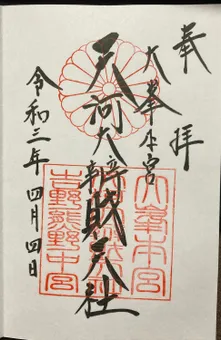 奉拝
大峯本宮
天河大辨財天社
令和三年四月四日
大峯本宮
吉野熊野中宮